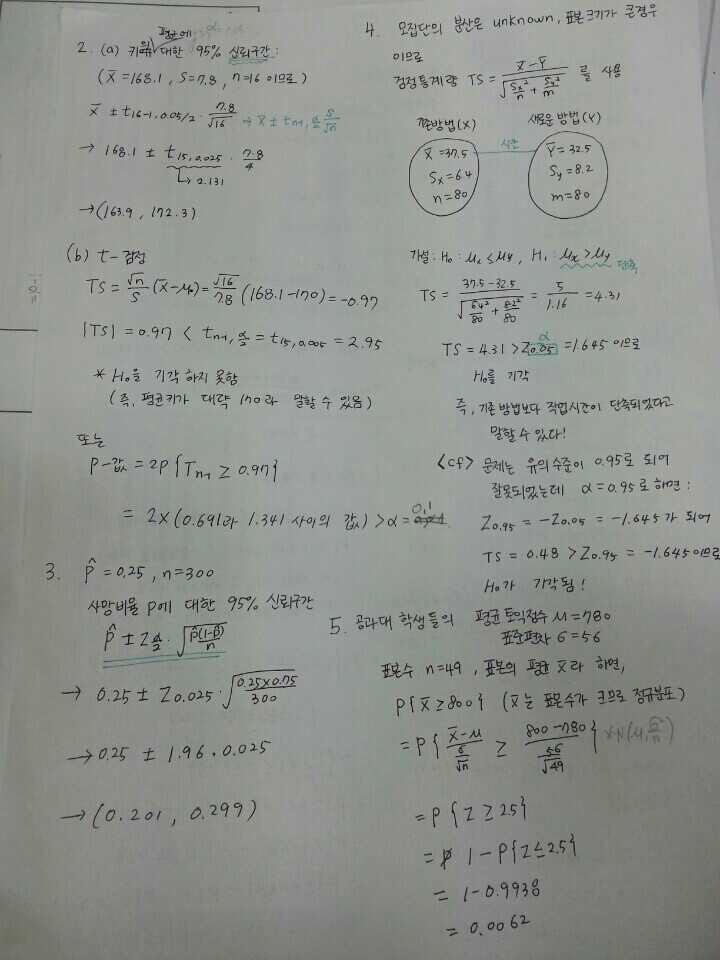 2. (a) 키의 평균에 대한 95% 신뢰구간:
(X̄=168.1, S=7.8, n=16 이므로)
X̄ ± t16-1, 0.05/2 · 7.8/√16 → X̄ ± tn-1, α/2 S/√n
→ 168.1 ± t15, 0.025 · 7.8/4
↳ 2.131
→ (163.9, 172.3)
(b) t-검정
TS = √n/S (X̄-μ0) = √16/7.8 (168.1-170) = -0.97
|TS| = 0.97 < tn-1, α/2 = t15, 0.005 = 2.95
* H0을 기각하지 못함
(즉, 평균키가 대략 170라 말할 수 있음)
또는
P-값 = 2P{Tn-1 ≥ 0.97}
= 2×(0.691과 1.341 사이의 값) > α = 0.1
3. p̂ = 0.25, n=300
사망비율 p에 대한 95% 신뢰구간
p̂ ± Zα/2 · √(p̂(1-p̂)/n)
→ 0.25 ± Z0.025 · √(0.25×0.75/300)
→ 0.25 ± 1.96 · 0.025
→ (0.201, 0.299)
4. 모집단의 분산은 unknown, 표본크기가 큰경우
이므로
검정통계량 TS = (X̄-Ȳ)/√(Sx²/n + Sy²/m) 를 사용
기존방법(X) 새로운 방법(Y)
시간
X̄=37.5 Ȳ=32.5
Sx=6.4 Sy=8.2
n=80 m=80
가설: H0: μx ≤ μy, H1: μx > μy
단축
TS = (37.5-32.5)/√(6.4²/80 + 8.2²/80) = 5/1.16 = 4.31
α
TS = 4.31 > Z0.05 = 1.645 이므로
H0를 기각
즉, 기존 방법보다 작업시간이 단축되었다고
말할 수 있다!
<cf> 문제는 유의수준이 0.95로 되어
잘못되었는데 α=0.95로 하면:
Z0.95 = -Z0.05 = -1.645가 되어
TS = 0.48 > Z0.95 = -1.645 이므로
H0가 기각됨!
5. 공과대 학생들의 평균 토익점수 μ=780
표준편차 σ=56
표본수 n=49, 표본의 평균 X̄라 하면,
P{X̄ ≥ 800} (X̄는 표본수가 크므로 정규분포)
= P{(X̄-μ)/(σ/√n) ≥ (800-780)/(56/√49)} X~N(μ, σ²/n)
= P{Z ≥ 2.5}
= 1-P{Z ≤ 2.5}
= 1-0.9938
= 0.0062